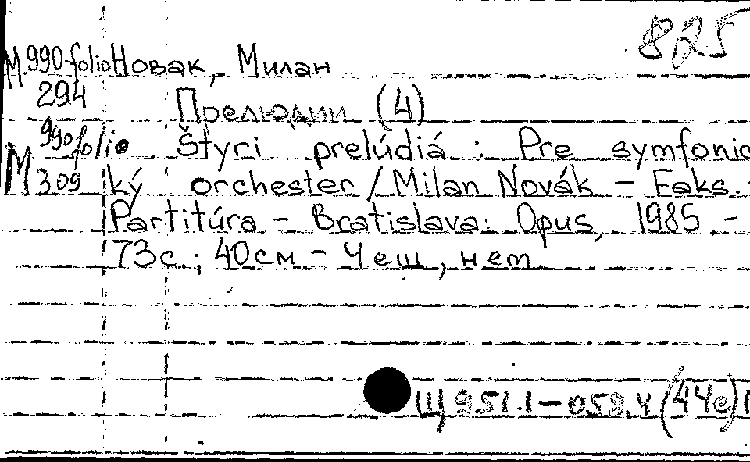 825
M 990 folio Новак, Милан
294 Прелюдии (4)
M 990 folio Štyri prelúdiá : Pre symfonic
309 ký orchester / Milan Novák – Faks. –
Partitúra – Bratislava: Opus, 1985 –
73с ; 40см – Чеш, нем
Щ 951.1–059.4 (44е)1